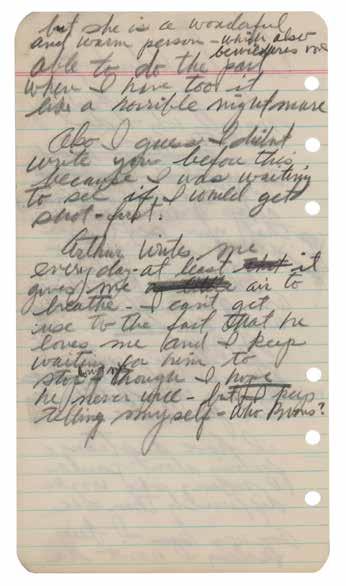 but she is a wonderful
and warm person - which also
me
able to do the part
when I have too it
like a horrible nightmare
Also I guess I didnt
write you before this
because I was waiting
to see if I would get
shot - first.
Arthur writes me
everyday - at least it
gives me air to
breathe - I cant get
use to the fact that he
loves me and I keep
waiting for him to
stop loving me - though I hope
he never will - but I keep
telling myself - who knows?